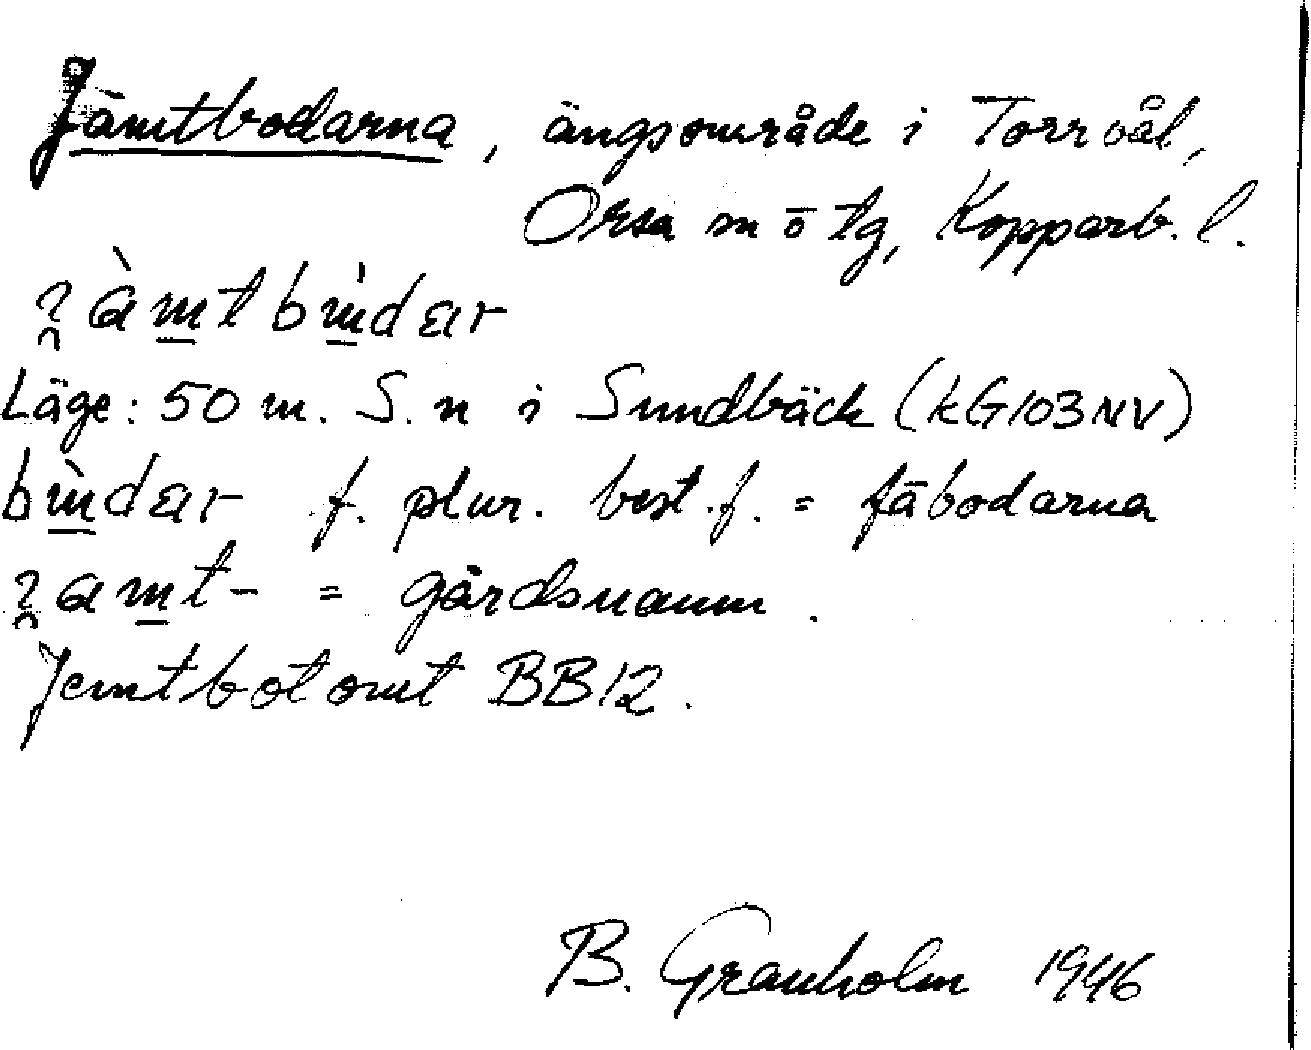 Jämtbodarna, ängsområde i Torrvål,
Orsa sn o tg, Kopparb. l.
Läge: 50 m. S. n i Sundbäck (kG103NV)
f. plur. best. f. = fäbodarna
= gårdsnamn.
Jemtbotomt BB12.
B. Granholm 1946